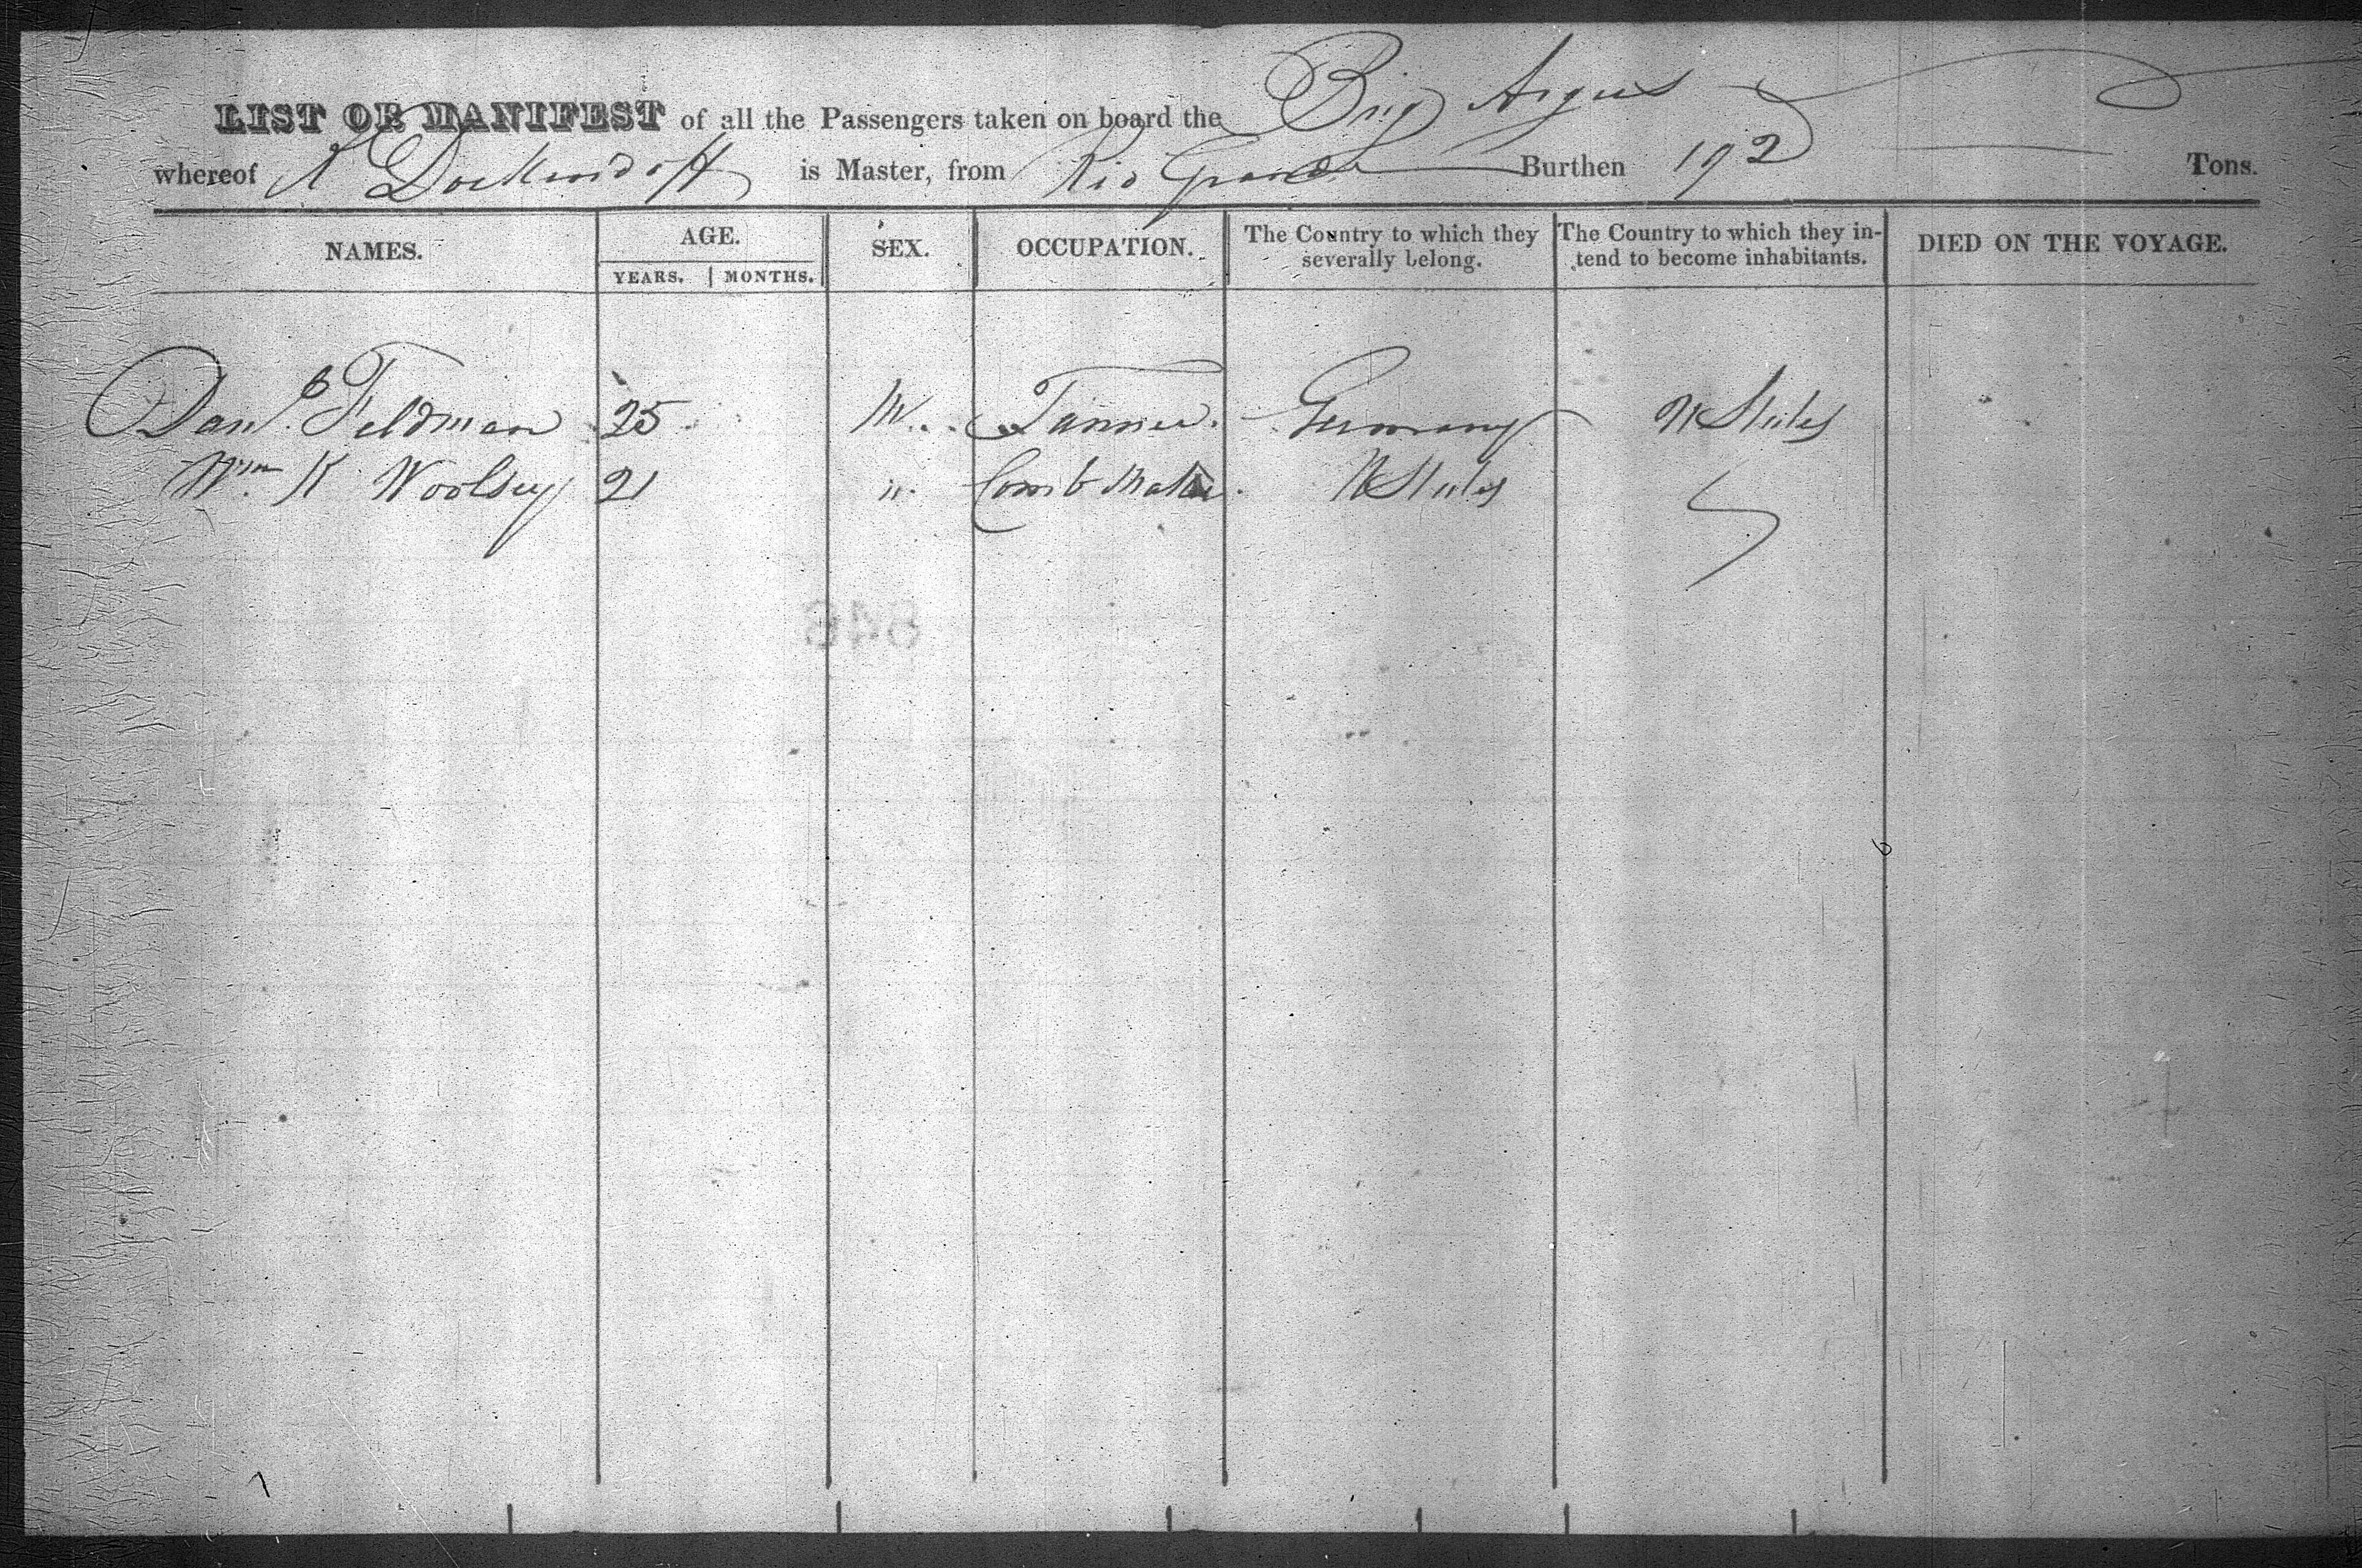 LIST OR MANIFEST of all the Passengers taken on board the Brig Argus
whereof Dockendorff is Master, from Rio Grande Burthen 192 Tons.
NAMES. AGE. SEX. OCCUPATION. The Country to which they severally belong. The Country to which they intend to become inhabitants. DIED ON THE VOYAGE.
YEARS. MONTHS.
Danl. Feldman 25 M. Tanner. Germany U States
Wm K Woolsey 21 ". Comb Maker. U States
846